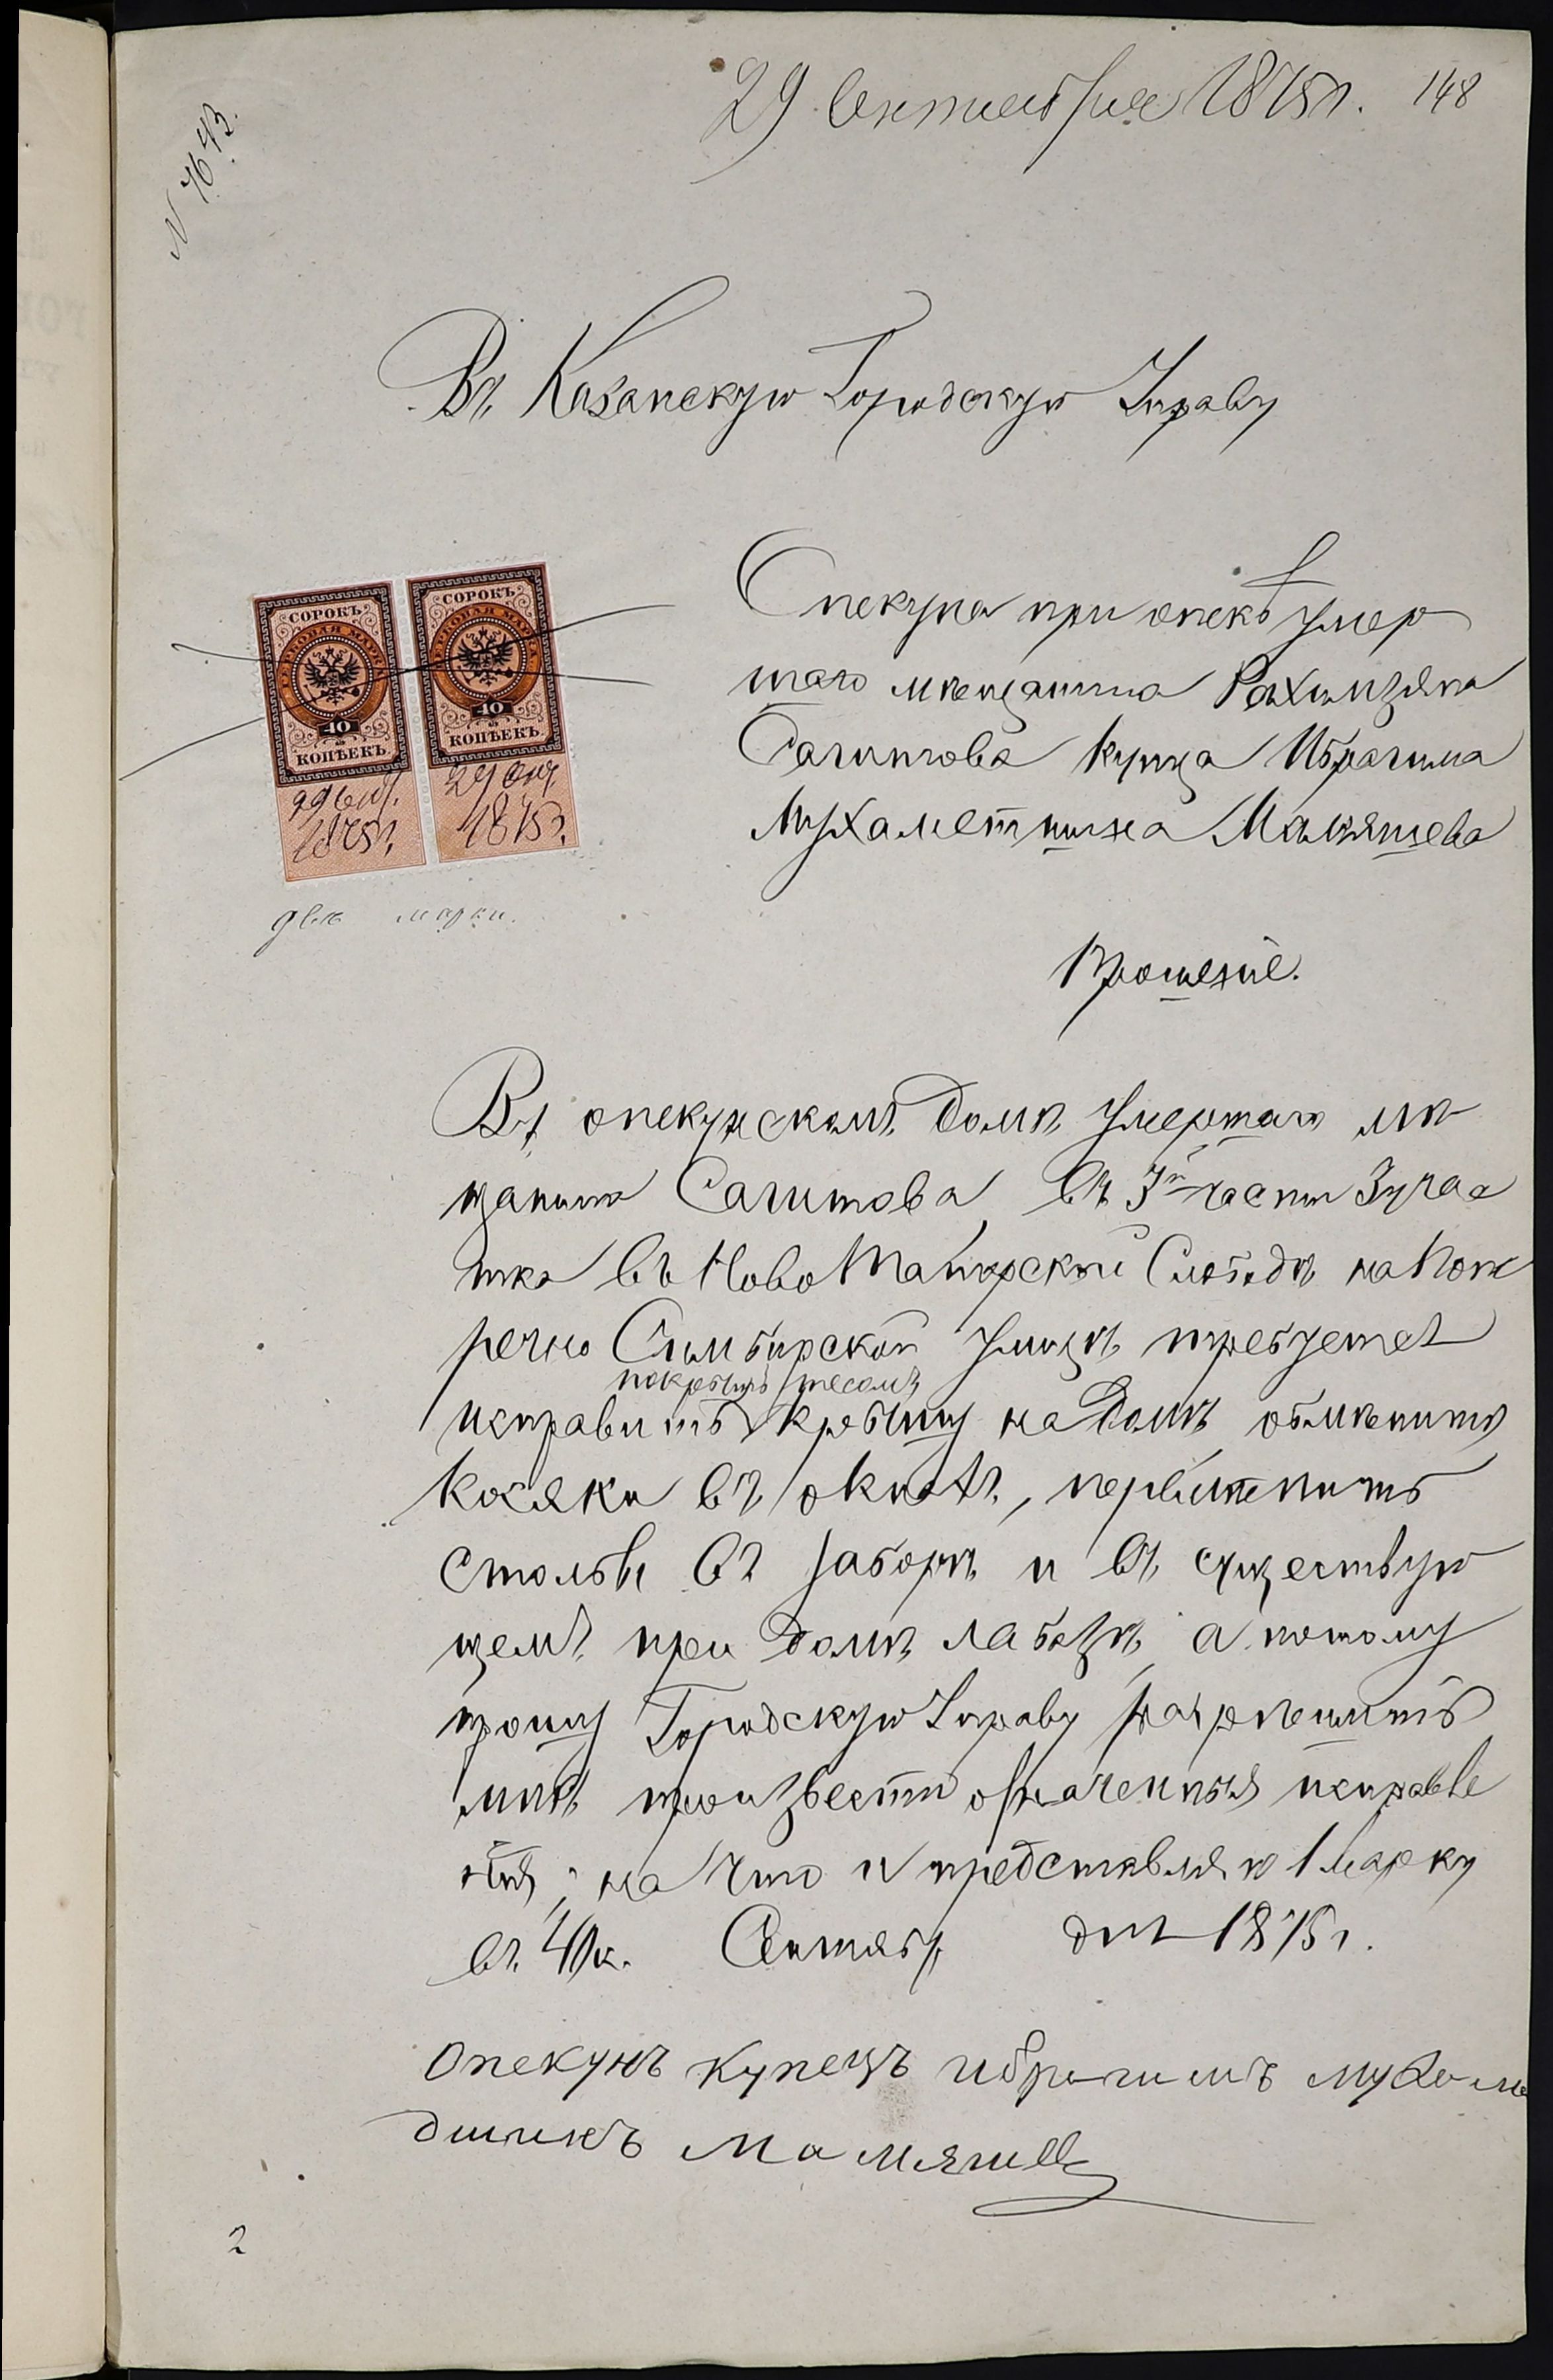 29 Сентября 1875 г. 148
N 7643.
Въ Казанскую Городскую Управу
СОРОКЪ СОРОКЪ
ГЕРБОВАЯ МАРКА ГЕРБОВАЯ МАРКА
40 40
КОПѢЕКЪ. КОПѢЕКЪ.
29 Сен. 29 Сен.
1875 г. 1875 г.
двѣ марки.
Опекуна при опекѣ умер
шаго мѣщанина Рахимзяна
Сагитова купца Ибрагима
Мухаметшина Мамяшева
Прошенie.
Въ опекунскомъ домѣ умершаго мѣ
щанина Сагитова, въ 3й части 3 учас
тка въ Ново Татарской Слободѣ на Попе
речно Симбирской улицѣ требуется
покрыть тесомъ
исправить крышу на домѣ обмѣнить
косяки въ окнахъ, перемѣнить
столбы въ заборѣ и въ существую
щемъ при домѣ лабазѣ, а потому
прошу Городскую Управу разрѣшить
мнѣ произвести означенныя исправле
нія; на что и представляю 1 марку
въ 40 к. Сентябр. дня 1875 г.
Опекунъ купецъ ибрагимъ мухаме
дшинъ мамяшев
2